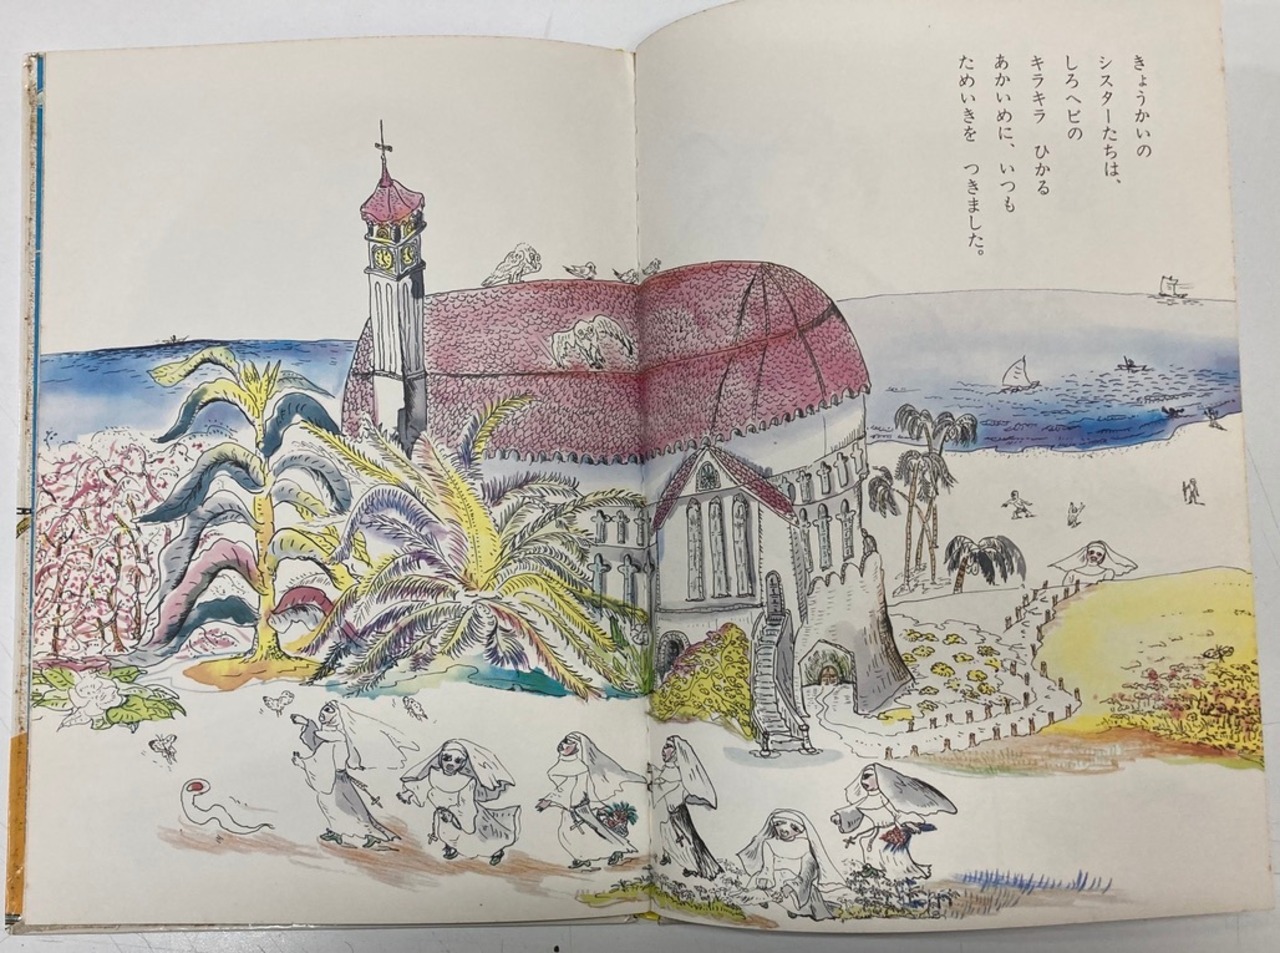 きょうかいの
シスターたちは、
しろヘビの
キラキラ　ひかる
あかいめに、いつも
ためいきを　つきました。